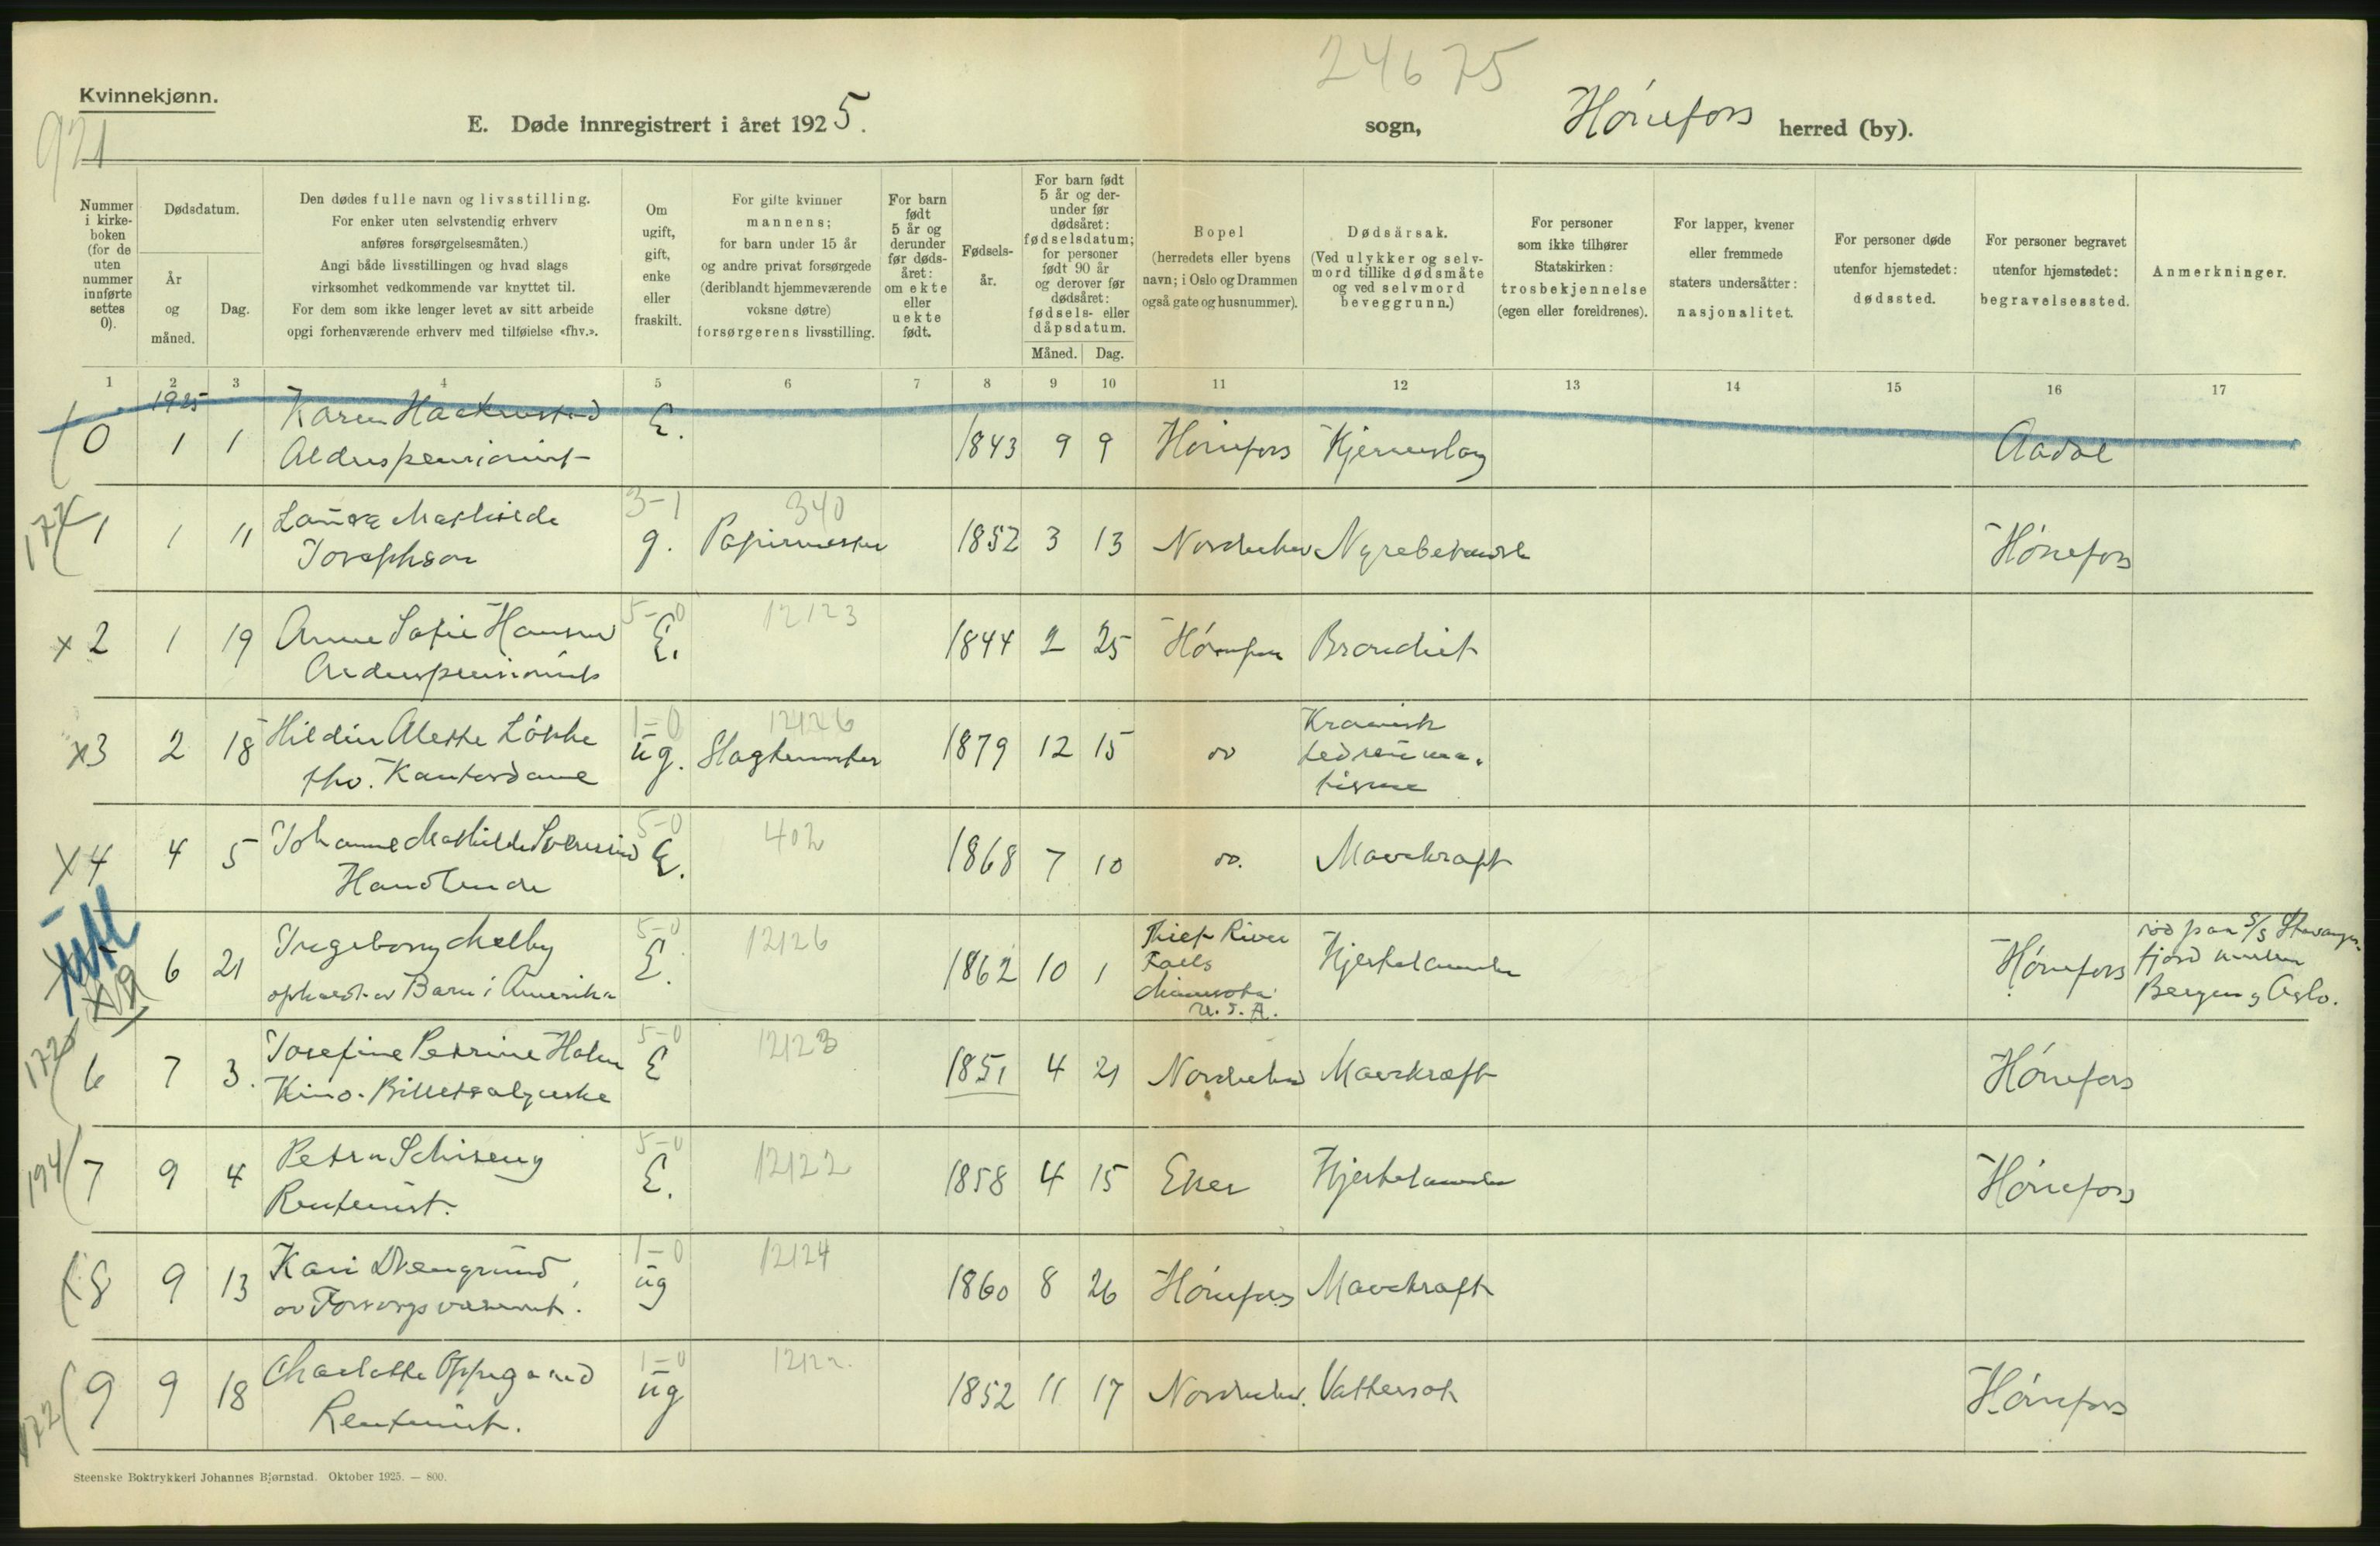 24675
Kvinnekjønn.
921
E. Døde innregistrert i året 1925.
sogn, Hønefoss herred (by).
Nummer i kirkeboken (for de uten nummer innførte settes 0).
Dødsdatum.
År og måned.
Dag.
Den dødes fulle navn og livsstilling.
For enker uten selvstendig erhverv
anføres forsørgelsesmåten.)
Angi både livsstillingen og hvad slags
virksomhet vedkommende var knyttet til.
For dem som ikke lenger levet av sitt arbeide
opgi forhenværende erhverv med tilføielse «fhv.».
Om ugift, gift, enke eller fraskilt.
For gifte kvinner mannens; for barn under 15 år og andre privat forsørgede (deriblandt hjemmeværende voksne døtre) forsørgerens livsstilling.
For barn født 5 år og derunder før dødsåret: om ekte eller uekte født.
Fødselsår.
For barn født 5 år og derunder før dødsåret: fødselsdatum; for personer født 90 år og derover før dødsåret: fødsels- eller dåpsdatum.
Måned. Dag.
Bopel (herredets eller byens navn; i Oslo og Drammen også gate og husnummer).
Dødsårsak. (Ved ulykker og selvmord tillike dødsmåte og ved selvmord beveggrunn.)
For personer som ikke tilhører Statskirken: trosbekjennelse (egen eller foreldrenes).
For lapper, kvener eller fremmede staters undersåtter: nasjonalitet.
For personer døde utenfor hjemstedet: dødssted.
For personer begravet utenfor hjemstedet: begravelsessted.
Anmerkninger.
1 2 3 4 5 6 7 8 9 10 11 12 13 14 15 16 17
1925
0 1 1 Karen E. 1843 9 9 Hønefoss Hjerneslag Aadal
Alderspensionist
3-1 340
1 1 11 Laura Mathilde Josephson g. Papirmester 1852 3 13 Norderhov Nyrebetændelse Hønefoss
5-0 12123
x 2 1 19 Anne Sofie Hansen E. 1844 2 25 Hønefoss Bronchit
Alderspensionist
1-0 12126
x3 2 18 Hildur Alette Løkke ug. Slagtermester 1879 12 15 " Kronisk ledreumatisme
fhv. Kontordame
5-0 402
x4 4 5 Johanne Mathilde E. 1868 7 10 " Mavekraft
Handlende
5-0 12126
6 21 Ingeborg Melby E. 1862 10 1 Thief River Falls Minnesota U.S.A. Hjertelammelse Hønefoss
opholdt av Barn i Amerika
død paa S/S Stavangerfjord mellem Bergen og Oslo.
5-0 12123
6 7 3. Josefine Petrine Holm E 1851 4 21 Norderhov Mavekræft Hønefoss
Kino-Billetsælgerske
5-0 12122
194 7 9 4 Petra E. 1858 4 15 Eker Hjertelammelse Hønefoss
Rentenist.
1-0 12124
8 9 13 Kari ug 1860 8 26 Hønefoss Mavekraft
av Forsorgsvesenet.
1-0 12122.
172 9 9 18 Charlotte Oppegaard ug 1852 11 17 Norderhov. Vattersot Hønefoss
Rentenist.
Steenske Boktrykkeri Johannes Bjørnstad. Oktober 1925. — 800.